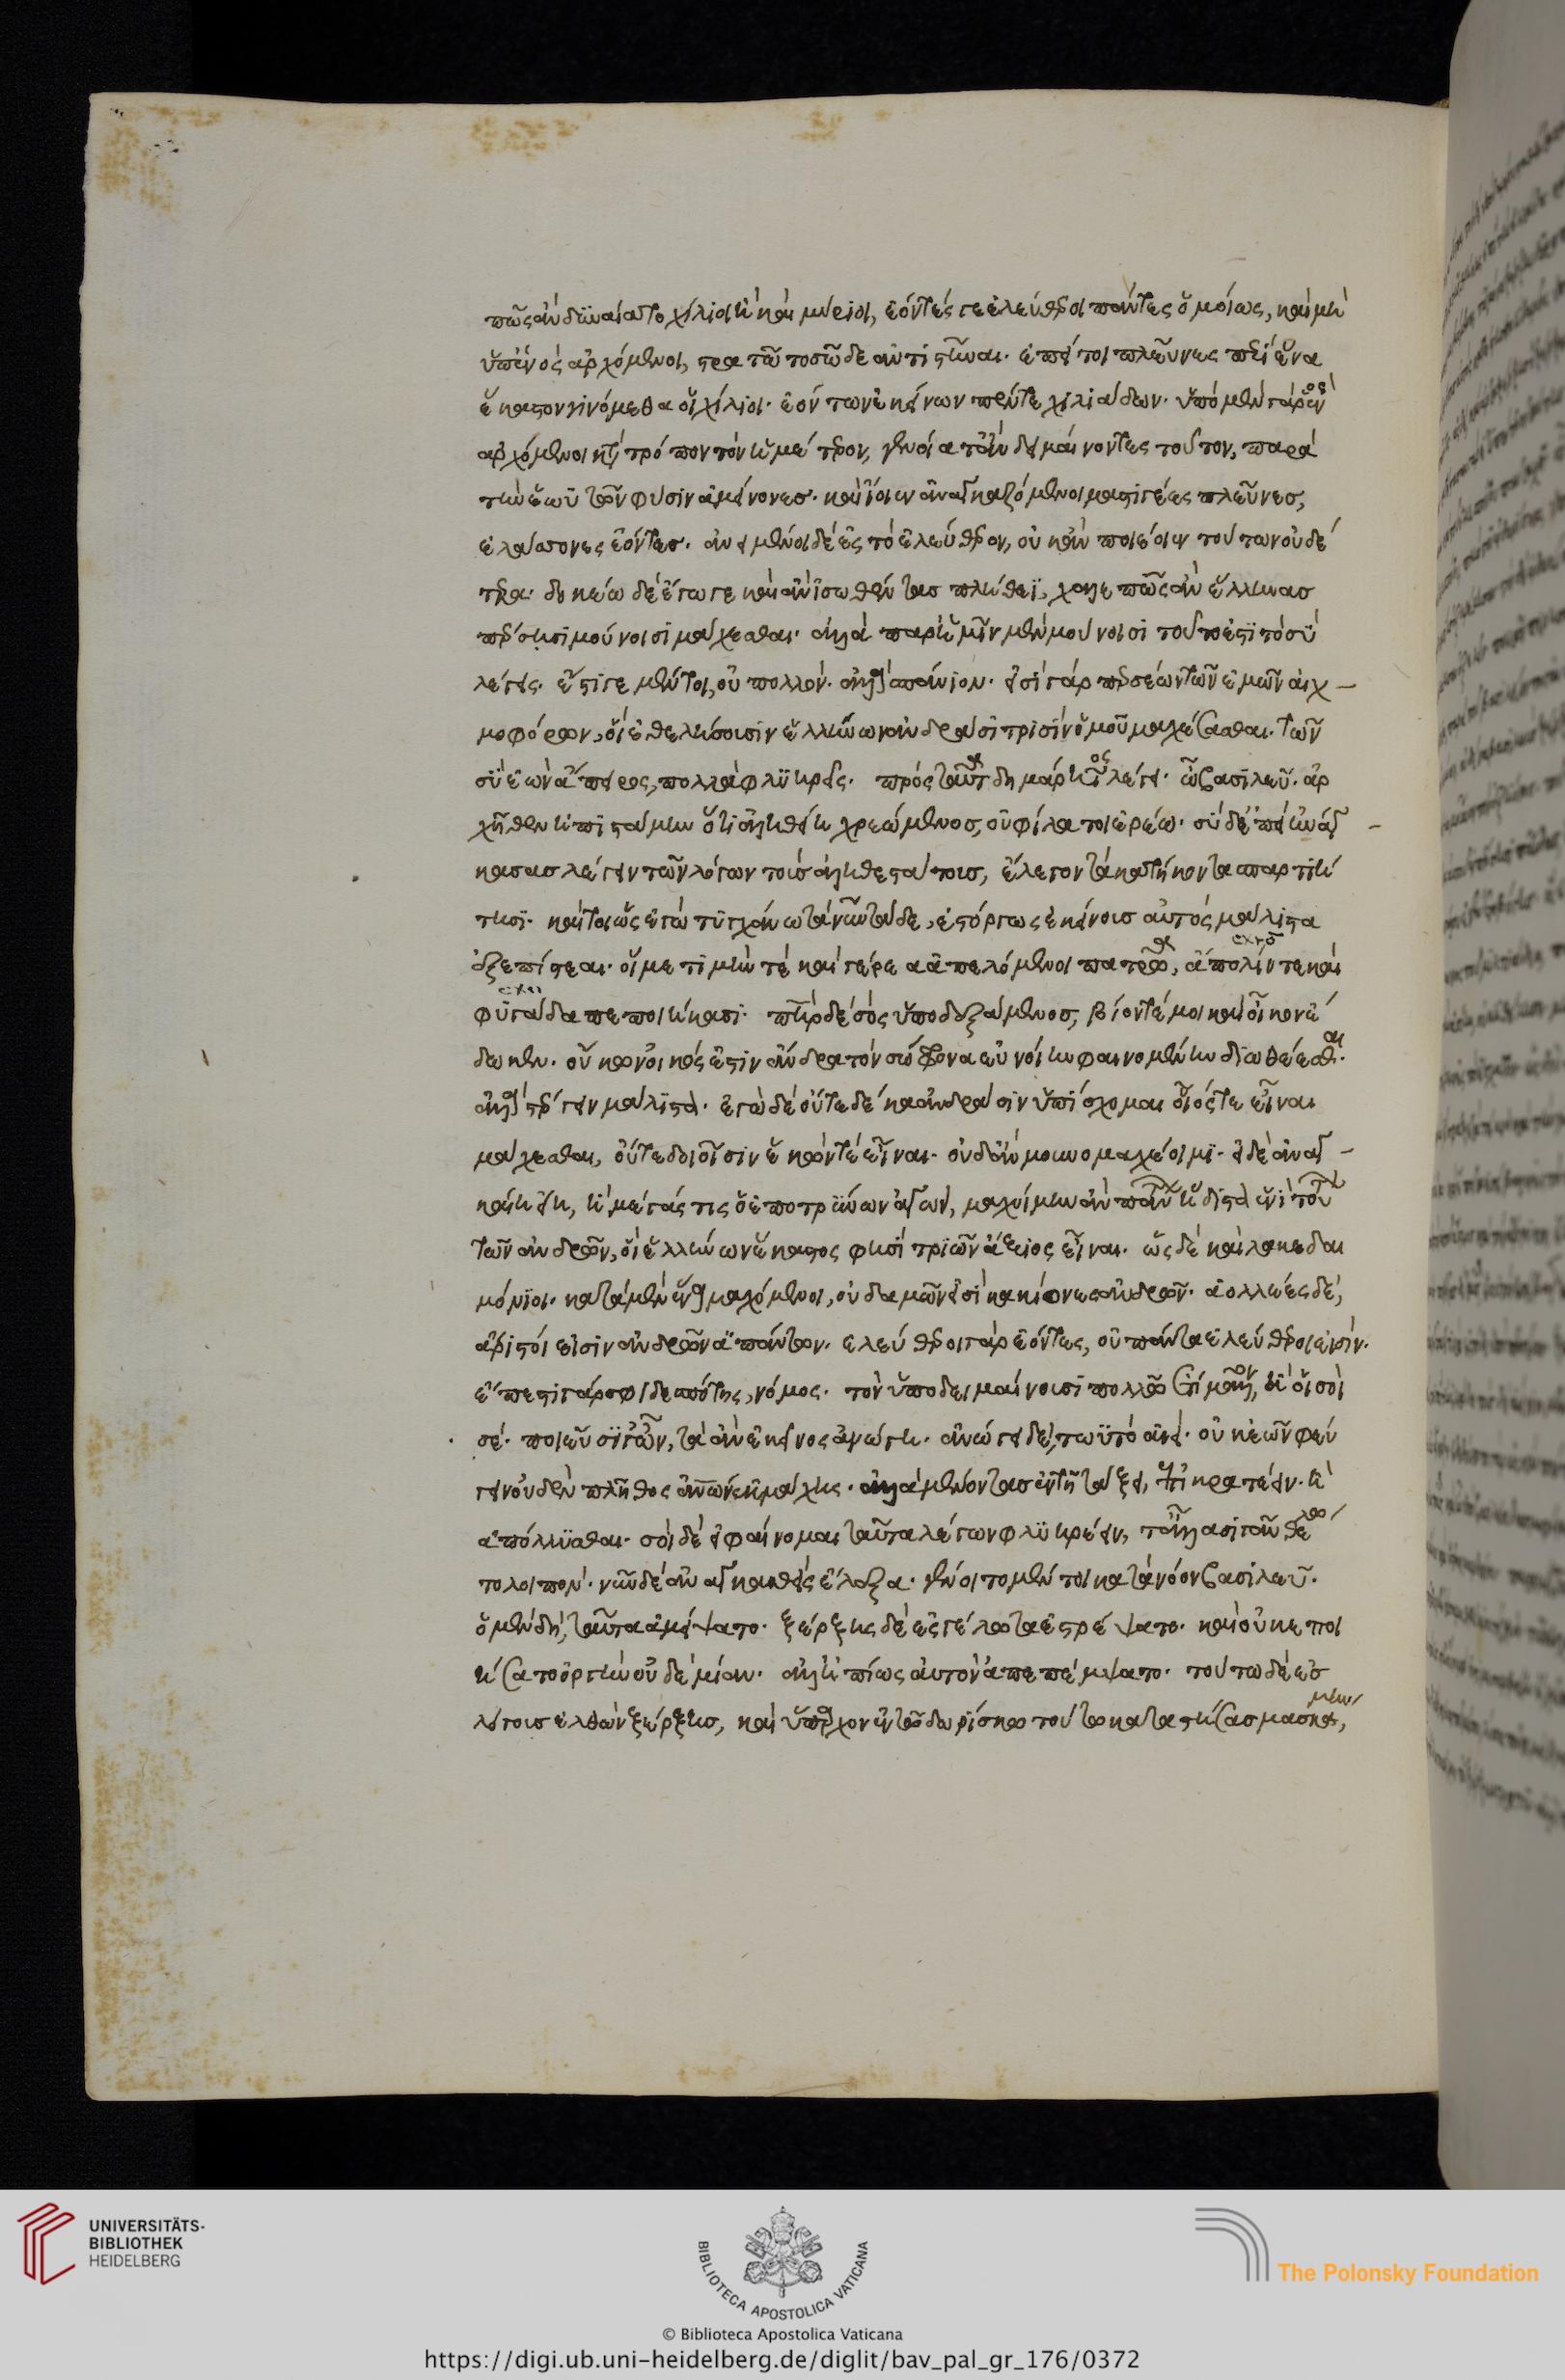 πῶς ἂν δυναίατο χίλιοι ἢ καὶ μύριοι, ἐόντές γε ἐλεύθεροι πάντες ὁμοίως, καὶ μὴ
ὑπ' ἑνὸς ἀρχόμενοι, στρατῶ τοσῶδε ἀντιστῆναι. ἐπεί τοι πλεῦνες περὶ ἕνα
ἕκαστον γινόμεθα οἱ χίλιοι. ἐόντων ἐκείνων πέντε χιλιάδων. ὑπὸ μὲν γὰρ ἑνὸς
ἀρχόμενοι κατὰ τρόπον τὸν ἡμέτερον, γενοίατ' ἂν δειμαίνοντες τοῦτον, παρὰ
τὴν ἑωυτῶν φύσιν ἀμείνονες. καὶ ἴοιεν ἀναγκαζόμενοι μάστιγι ἐς πλεῦνες,
ἐλάσσονες ἐόντες. ἀνειμένοι δὲ ἐς τὸ ἐλεύθερον, οὐκ ἂν ποιέοιεν τούτων οὐδέ
τερα. δοκέω δὲ ἔγωγε καὶ ἀνισωθέντας πλήθεϊ, χαλεπῶς ἂν ἕλληνας
πέρσησι μούνοισι μάχεσθαι. ἀλλὰ παρ' ἡμῖν μὲν μούνοισι τοῦτό ἐστι τὸ σὺ
λέγεις. ἔστι γε μέντοι, οὐ πολλὸν. ἀλλὰ σπάνιον. εἰσὶ γὰρ περσέων τῶν ἐμῶν αἰχ–
μοφόρων, οἳ ἐθελήσουσιν ἑλλήνων ἀνδράσι τρισὶν ὁμοῦ μαχέσασθαι. τῶν
σὺ ἐὼν ἄπειρος, πολλὰ φλυηρεῖς. πρὸς ταῦτα δημάρητος λέγει. ὦ βασιλεῦ. ἀρ
χῆθεν ἠπιστάμην ὅτι ἀληθείη χρεώμενος, οὐ φίλα τοι ἐρέω. σὺ δὲ ἐπεὶ ἠνάγ–
κασας λέγειν τῶν λόγων τοὺς ἀληθεστάτους, ἔλεγον τὰ κατήκοντα σπαρτιή
τησι. καίτοι ὡς ἐγὼ τυγχάνω τὰ νῦν τάδε ἐστοργὼς ἐκείνους αὐτὸς μάλιστα
ἐξεπίστεαι. οἵ με τιμήν τε καὶ γέρεα ἀπελόμενοι πατρώϊα, ἄπολίν τε καὶ
φυγάδα πεποιήκασι. πατὴρ δὲ σὸς ὑποδεξάμενος, βίον τέ μοι καὶ οἶκον ἔ
δωκεν. οὔκων οἰκός ἐστιν ἄνδρα τὸν σώφρονα εὐνοίην φαινομένην διωθέεσθαι.
ἀλλὰ στέργειν μάλιστα. ἐγὼ δὲ οὔτε δέκα ἀνδράσιν ὑπίσχομαι οἷός τε εἶναι
μάχεσθαι, οὔτε δυοῖσιν ἑκών τέ εἶναι. οὐδ' ἂν μουνομαχέοιμι. εἰ δὲ ἀναγ–
καίη εἴη, ἢ μέγας τις ὁ ἐποτρύνων ἀγών, μαχοίμην ἂν πάντων ἥδιστα ἑνὶ τουτέων
τῶν ἀνδρῶν, οἳ ἑλλήνων ἕκαστος φησὶ τριῶν ἄξιος εἶναι. ὣς δὲ καὶ λακεδαι
μόνιοι. κατὰ μὲν ἕνα μαχόμενοι, οὐδαμῶν εἰσὶ κακίονες ἀνδρῶν. ἁολλέες δέ,
ἄριστοί εἰσιν ἀνδρῶν ἁπάντων. ἐλεύθεροι γὰρ ἐόντες, οὐ πάντα ἐλεύθεροί εἰσιν.
ἔπεστι γάρ σφι δεσπότης, νόμος. τὸν ὑποδειμαίνουσι πολλῶ ἔτι μᾶλλον, ἢ οἱ σοὶ
σέ. ποιεῦσι γῶν, τὰ ἂν ἐκεῖνος ἀνώγη. ἀνώγει δέ, τωὐτὸ αἰεί. οὐκ ἐῶν φεύ
γειν οὐδὲν πλῆθος ἀνθρώπων ἐκ μάχης. ἀλλὰ μένοντας ἐν τῆ τάξει, ἐπικρατέειν. ἢ
ἀπόλλυσθαι. σοὶ δὲ εἰ φαίνομαι ταῦτα λέγων φλυηρέειν, τἆλλα σιγᾶν θέλω
τὸ λοιπόν. νῦν δὲ ἀναγκασθεὶς ἔλεξα. γένοιτο μέντοι κατὰ νόον βασιλεῦ.
ὁ μὲν δὴ, ταῦτα ἀμείψατο. ξέρξης δὲ ἐς γέλωτα ἐτρέψατο. καὶ οὐκ ἐποι
ήσατο ὀργὴν οὐδεμίαν. ἀλλ' ἠπίως αὐτὸν ἀπεπέμψατο. τούτω δὲ ἐς
λόγους ἐλθὼν ξέρξης, καὶ ὕπαρχον ἐν τῶ δωρίσκω τούτω καταστήσας μασκάμην,
UNIVERSITÄTS-
BIBLIOTHEK
HEIDELBERG
BIBLIOTECA APOSTOLICA VATICANA
The Polonsky Foundation
© Biblioteca Apostolica Vaticana
https://digi.ub.uni-heidelberg.de/diglit/bav_pal_gr_176/0372